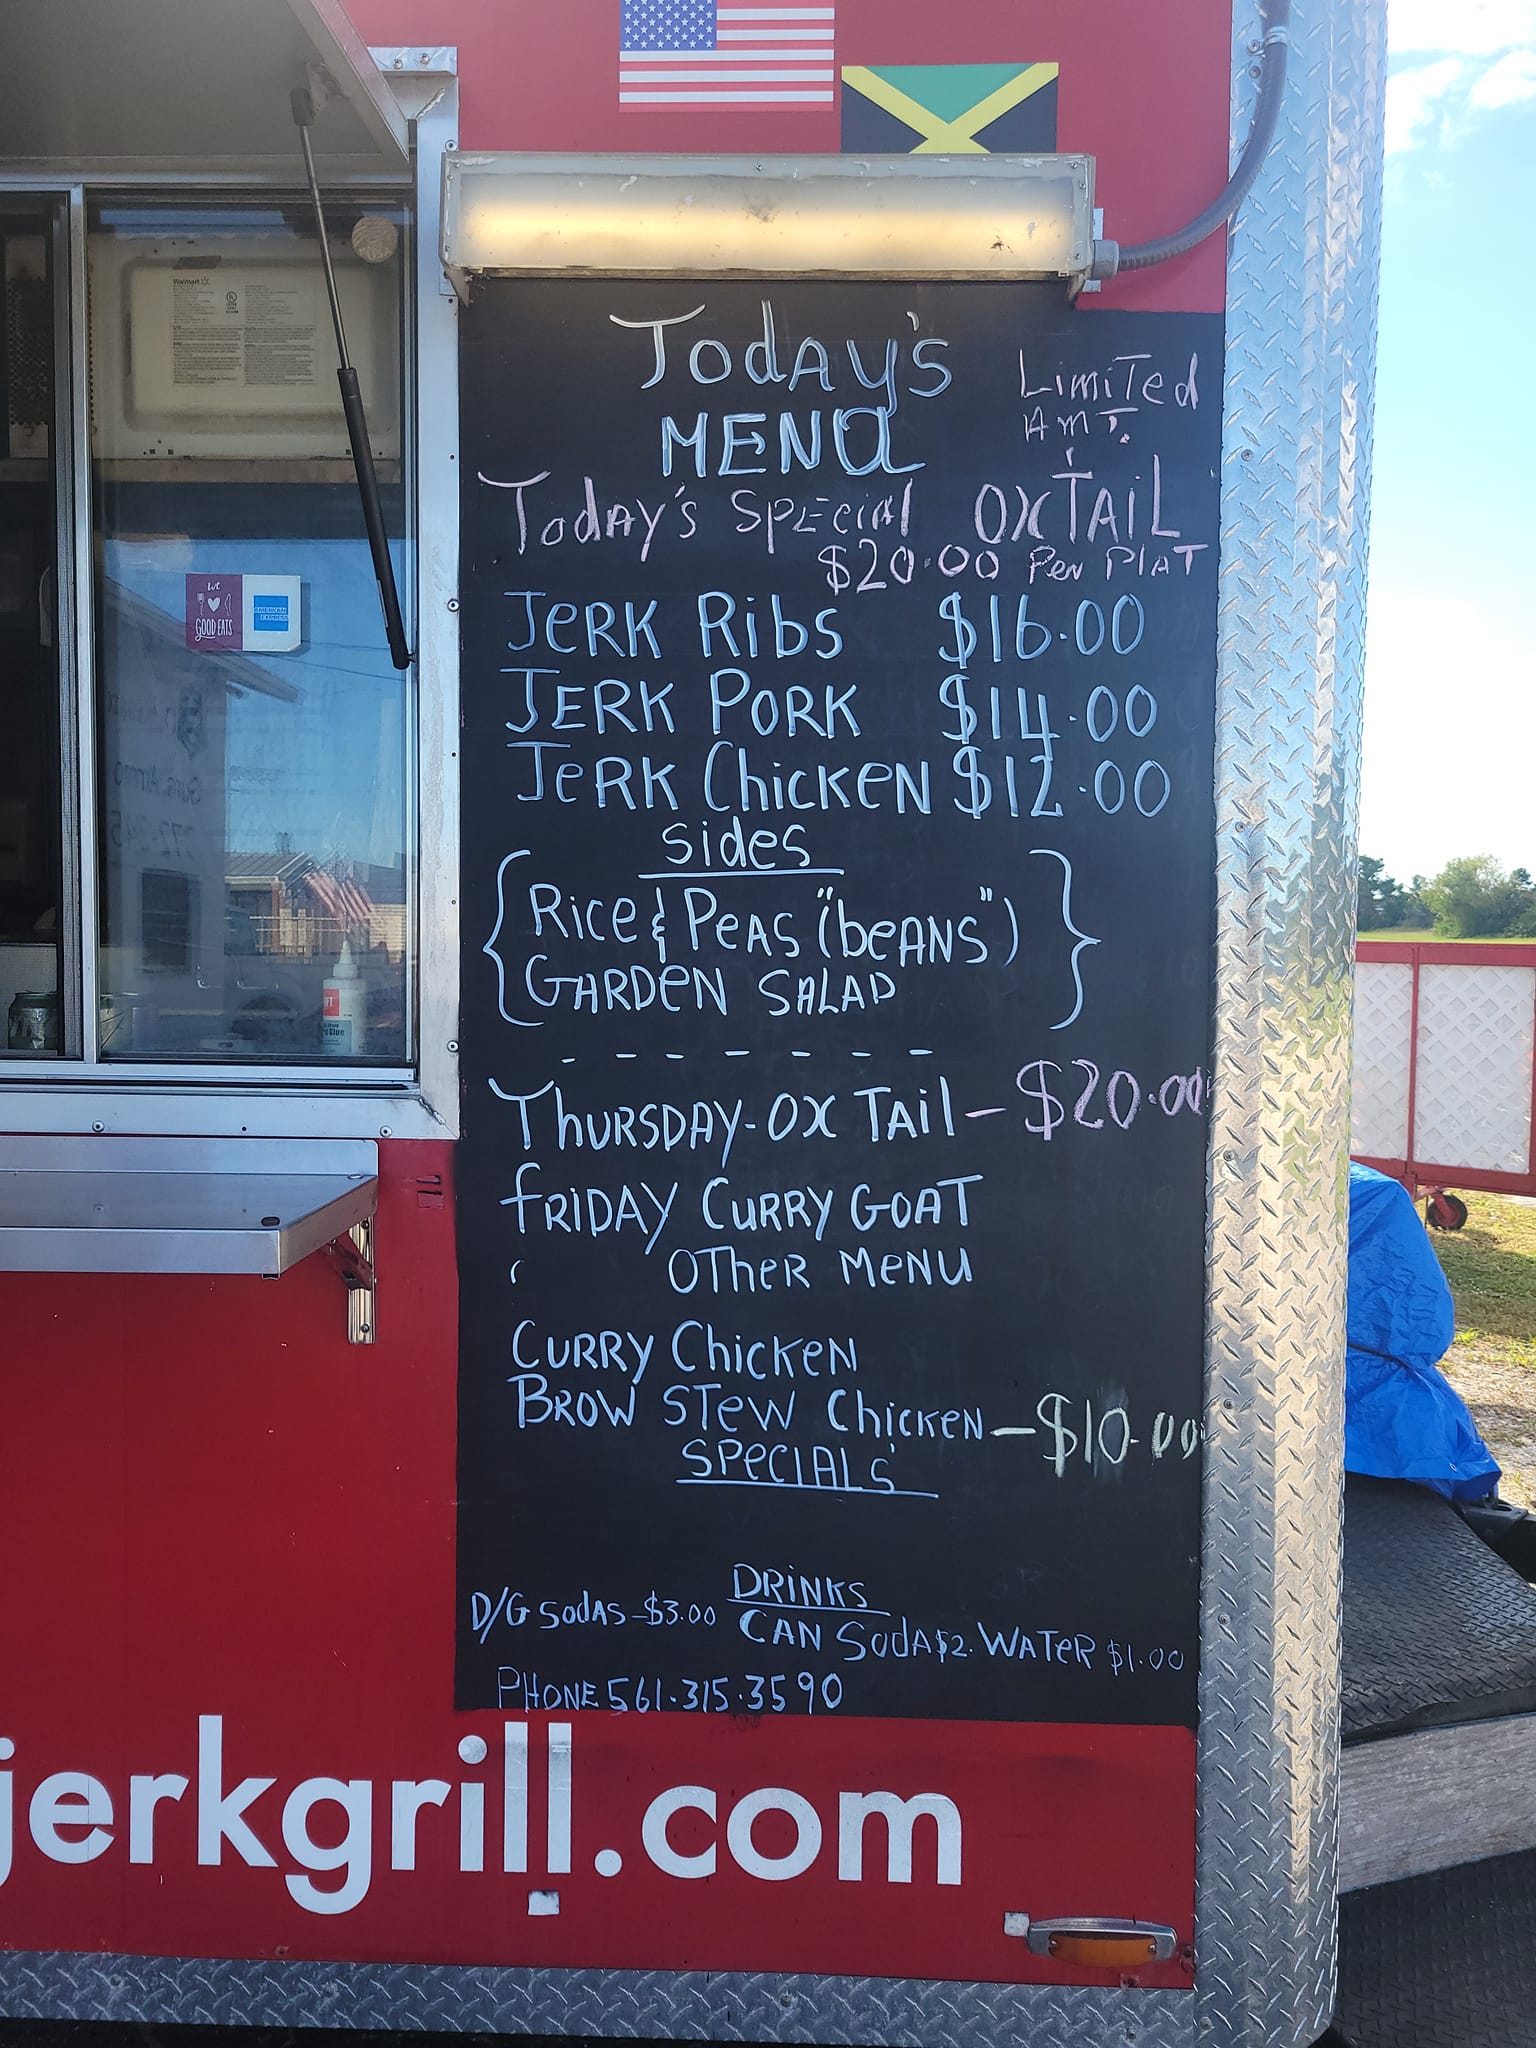 Today's
MENU
Limited
AMT.
Today's Special OXTAIL
$20.00 Per PLAT
JERK Ribs $16.00
JERK PORK $14.00
JERK ChickEN $12.00
sides
Rice & PEAS ("beANS")
GARDEN SALAD
THURSDAY-OX TAil - $20.00
FRIDAY CURRY GOAT
OTHER MENU
CURRY ChickeN
BROW STEW ChickeN - $10.00
SPECIALS
DRINKS
D/G SODAS - $3.00
CAN SODA $2. WATER $1.00
PHONE 561.315.3590
jerkgrill.com
Walmart
We
GOOD EATS
AMERICAN
EXPRESS